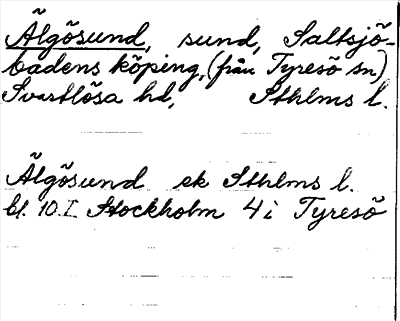 Älgösund, sund, Saltsjö-
badens köping, (från Tyresö sn)
Svartlösa hd, Sthlms l.
Älgösund ek Sthlms l.
bl. 10.I Stockholm 4 i Tyresö